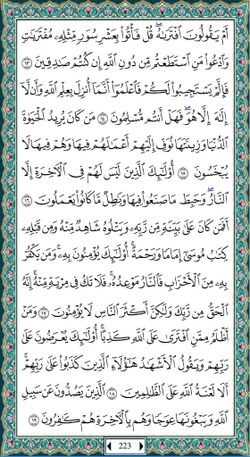 أَمْ يَقُولُونَ ٱفْتَرَىٰهُ ۖ قُلْ فَأْتُوا۟ بِعَشْرِ سُوَرٍ مِّثْلِهِۦ مُفْتَرَيَٰتٍ
وَٱدْعُوا۟ مَنِ ٱسْتَطَعْتُم مِّن دُونِ ٱللَّهِ إِن كُنتُمْ صَٰدِقِينَ ١٣
فَإِلَّمْ يَسْتَجِيبُوا۟ لَكُمْ فَٱعْلَمُوٓا۟ أَنَّمَآ أُنزِلَ بِعِلْمِ ٱللَّهِ وَأَن لَّآ
إِلَٰهَ إِلَّا هُوَ ۖ فَهَلْ أَنتُم مُّسْلِمُونَ ١٤ مَن كَانَ يُرِيدُ ٱلْحَيَوٰةَ
ٱلدُّنْيَا وَزِينَتَهَا نُوَفِّ إِلَيْهِمْ أَعْمَٰلَهُمْ فِيهَا وَهُمْ فِيهَا لَا
يُبْخَسُونَ ١٥ أُو۟لَٰٓئِكَ ٱلَّذِينَ لَيْسَ لَهُمْ فِى ٱلْءَاخِرَةِ إِلَّا
ٱلنَّارُ ۖ وَحَبِطَ مَا صَنَعُوا۟ فِيهَا وَبَٰطِلٌ مَّا كَانُوا۟ يَعْمَلُونَ ١٦
أَفَمَن كَانَ عَلَىٰ بَيِّنَةٍ مِّن رَّبِّهِۦ وَيَتْلُوهُ شَاهِدٌ مِّنْهُ وَمِن قَبْلِهِۦ
كِتَٰبُ مُوسَىٰٓ إِمَامًا وَرَحْمَةً ۚ أُو۟لَٰٓئِكَ يُؤْمِنُونَ بِهِۦ ۚ وَمَن يَكْفُرْ
بِهِۦ مِنَ ٱلْأَحْزَابِ فَٱلنَّارُ مَوْعِدُهُۥ ۚ فَلَا تَكُ فِى مِرْيَةٍ مِّنْهُ ۚ إِنَّهُ
ٱلْحَقُّ مِن رَّبِّكَ وَلَٰكِنَّ أَكْثَرَ ٱلنَّاسِ لَا يُؤْمِنُونَ ١٧ وَمَنْ
أَظْلَمُ مِمَّنِ ٱفْتَرَىٰ عَلَى ٱللَّهِ كَذِبًا ۚ أُو۟لَٰٓئِكَ يُعْرَضُونَ عَلَىٰ
رَبِّهِمْ وَيَقُولُ ٱلْأَشْهَٰدُ هَٰٓؤُلَآءِ ٱلَّذِينَ كَذَبُوا۟ عَلَىٰ رَبِّهِمْ ۚ
أَلَا لَعْنَةُ ٱللَّهِ عَلَى ٱلظَّٰلِمِينَ ١٨ ٱلَّذِينَ يَصُدُّونَ عَن سَبِيلِ
ٱللَّهِ وَيَبْغُونَهَا عِوَجًا وَهُم بِٱلْءَاخِرَةِ هُمْ كَٰفِرُونَ ١٩
223